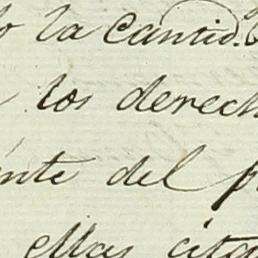 la Cantid.
los derech
nte del
ellas cita